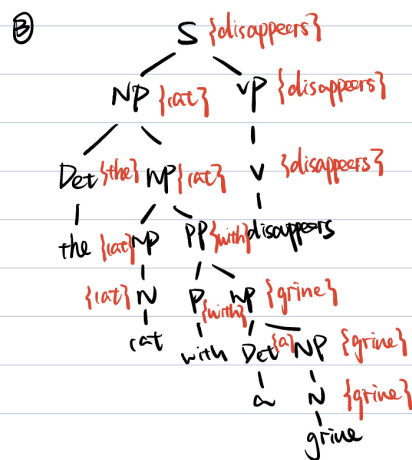 B
S {disappeers}
NP {cat} VP {disappeers}
Det {the} NP {cat} V {disappeers}
the {cat} NP PP {with} disappears
{cat} N P {with} NP {grine}
cat with Det {a} NP {grine}
a N {grine}
grine